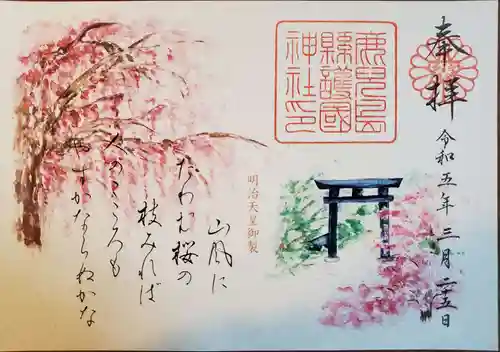 奉拝
令和五年三月二十五日
鹿兒島
縣護國
神社印
明治天皇御製
山風に
たわむ桜の
枝みれば
人のこころも
かならぬかな